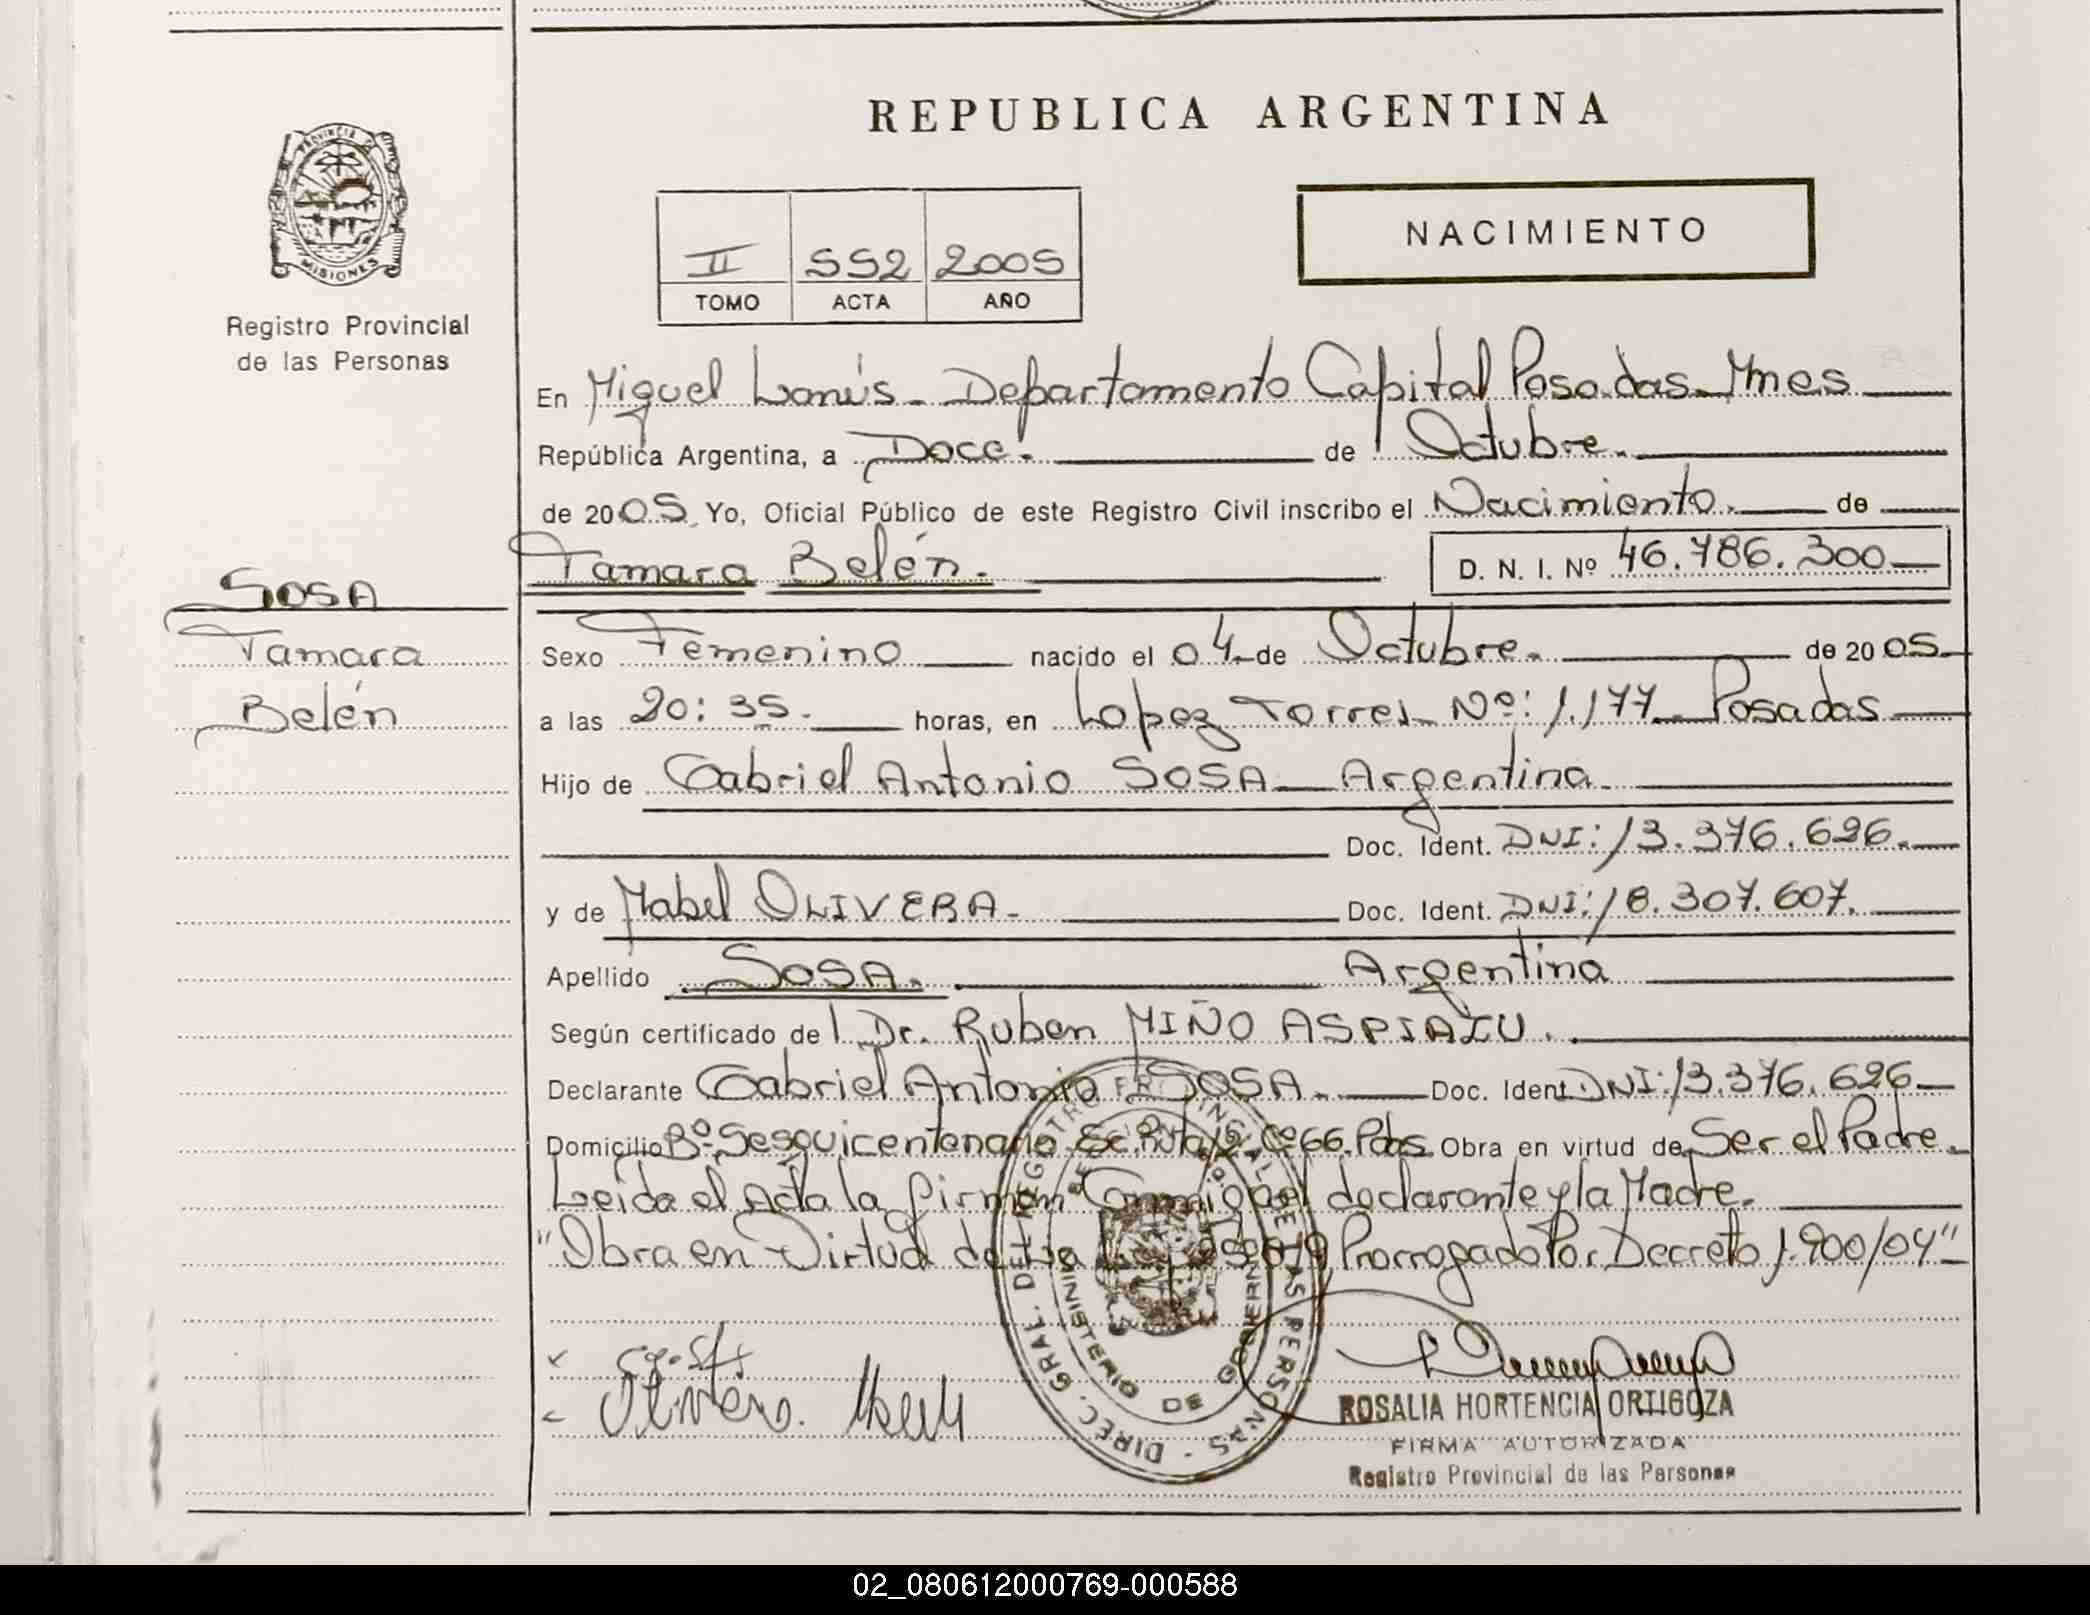 REPUBLICA ARGENTINA
PROVINCIA DE MISIONES
Registro Provincial
de las Personas
II 552 2005
TOMO ACTA AÑO
NACIMIENTO
En Miguel Lanús - Departamento Capital Posadas - Mnes
República Argentina, a Doce. de Octubre.
de 2005 Yo, Oficial Público de este Registro Civil inscribo el Nacimiento. de
Tamara Belén. D. N. I. Nº 46.786.300
SOSA
Tamara
Belén
Sexo Femenino nacido el 04 de Octubre. de 2005
a las 20:35. horas, en Lopez Torres Nº: 1.177 Posadas
Hijo de Gabriel Antonio SOSA - Argentina.
Doc. Ident. DNI: 13.376.626.
y de Mabel OLIVERA - Doc. Ident. DNI: 18.307.607.
Apellido SOSA. Argentina
Según certificado del Dr. Ruben MIÑO ASPIAZU.
Declarante Gabriel Antonio SOSA. Doc. Ident DNI: 13.376.626
Domicilio Bº Sesquicentenario Cº 66. Pdas Obra en virtud de Ser el Padre.
Leida el Acta la firman Conmigo el declarante y la Madre.
"Obra en Virtud de La Prorrogado Por Decreto 1.900/04"
DIREC. GRAL. DEL REGISTRO PROVINCIAL DE LAS PERSONAS
MINISTERIO DE GOBIERNO
Olivera. Mabel
ROSALIA HORTENCIA ORTIGOZA
FIRMA AUTORIZADA
Registro Provincial de las Personas
02_080612000769-000588